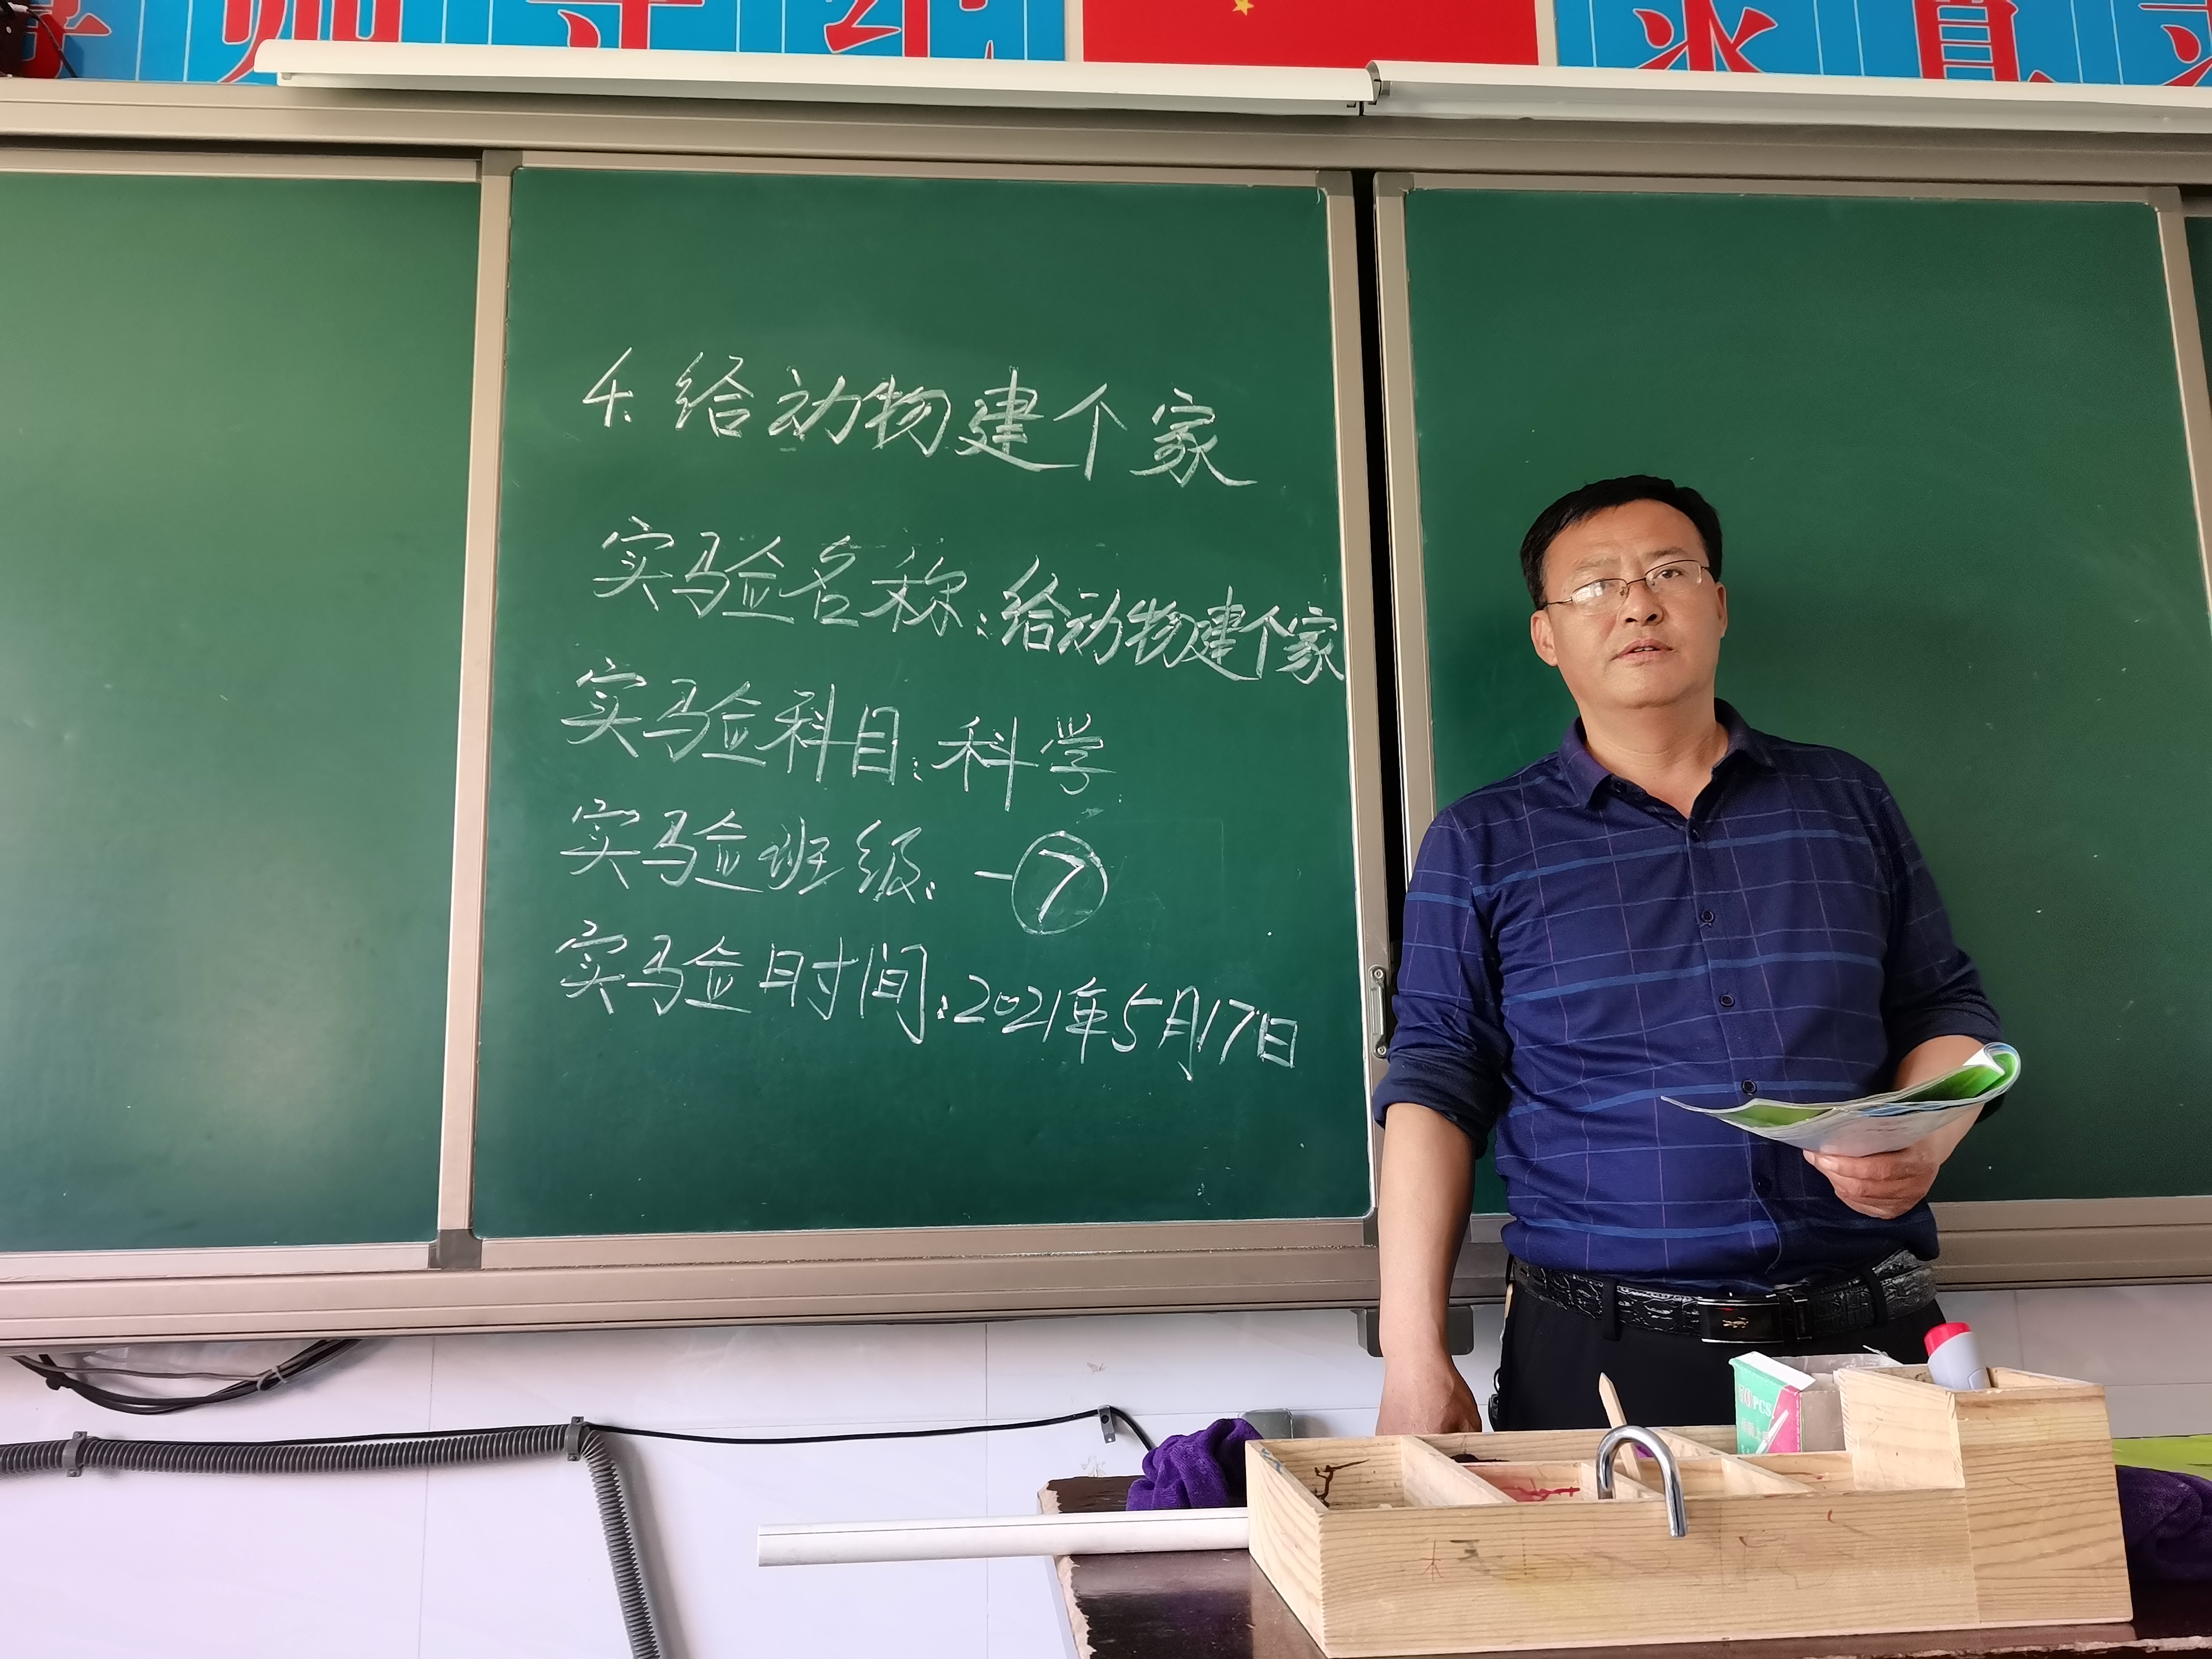 尊师守纪 求真
4. 给动物建个家
实验名称:给动物建个家
实验科目:科学
实验班级:一⑦
实验时间:2021年5月17日
PCS